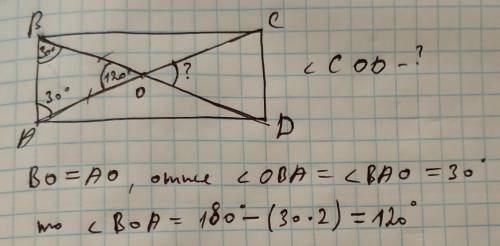 B C
30° 120° ? < COD - ?
30° O
A D
BO = AO, отже < OBA = < BAO = 30°
то < BOA = 180° - (30·2) = 120°